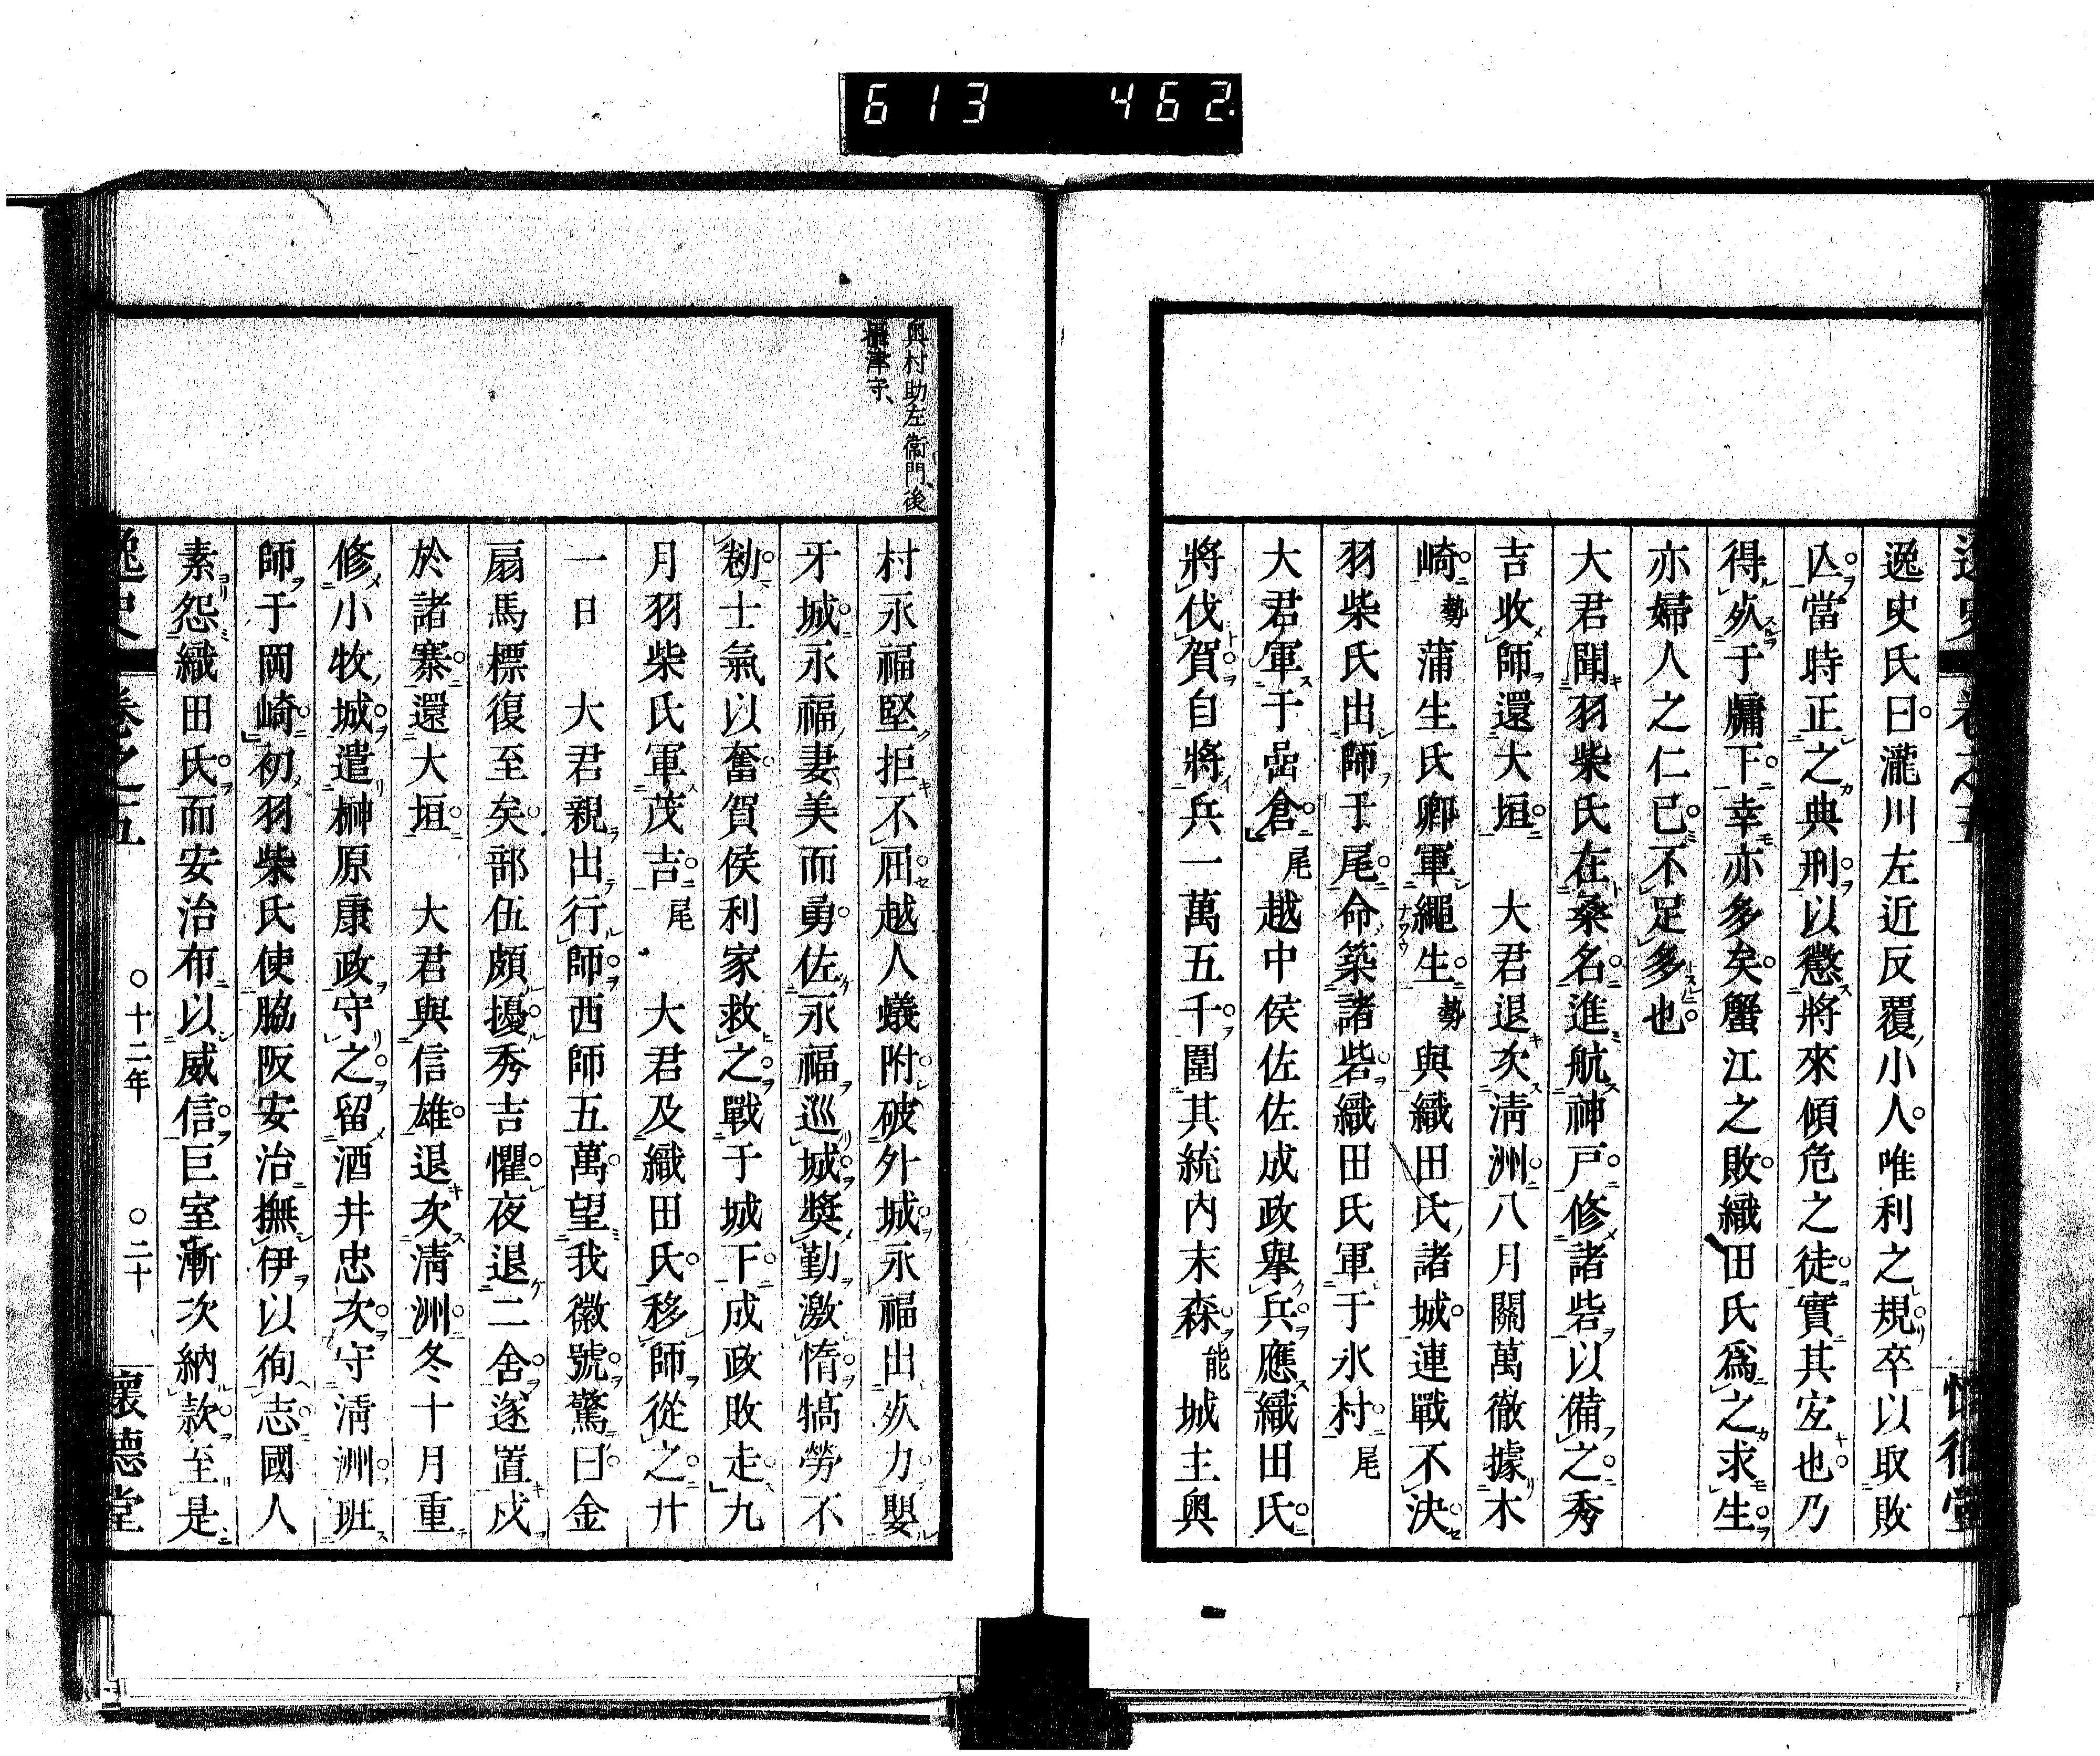 613 462
逸史 卷之五 懷德堂
逸史氏曰瀧川左近反覆小人唯利之規卒以取敗
亾當時正之典刑以懲將來傾危之徒實其宐也乃
得歿于牖下幸亦多矣蟹江之敗織田氏爲之求生
亦婦人之仁已不足多也
大君聞羽柴氏在桑名進航神戸修諸砦以備之秀
吉收師還大垣 大君退次淸洲八月關萬徹據木
崎勢蒲生氏卿軍繩生勢與織田氏諸城連戰不決
羽柴氏出師于尾命築諸砦織田氏軍于氷村尾
大君軍于嵒倉尾越中侯佐佐成政擧兵應織田氏
將伐賀自將兵一萬五千圍其統內末森能城主奥
奥村助左衞門、後
攝津守、
村永福堅拒不屈越人蟻附破外城永福出歿力嬰
牙城永福妻美而勇佐永福巡城奬勤激惰犒勞不
勌士氣以奮賀侯利家救之戰于城下成政敗走九
月羽柴氏軍茂吉尾 大君及織田氏移師從之廿
一日 大君親出行師西師五萬望我徽號驚曰金
扇馬標復至矣部伍頗擾秀吉懼夜退二舍遂置戍
於諸寨還大垣 大君與信雄退次淸洲冬十月重
修小牧城遣榊原康政守之留酒井忠次守淸洲班
師于岡崎初羽柴氏使脇阪安治撫伊以徇志國人
素怨織田氏而安治布以威信巨室漸次納款至是
逸史 卷之五 ○十二年 ○二十 懷德堂